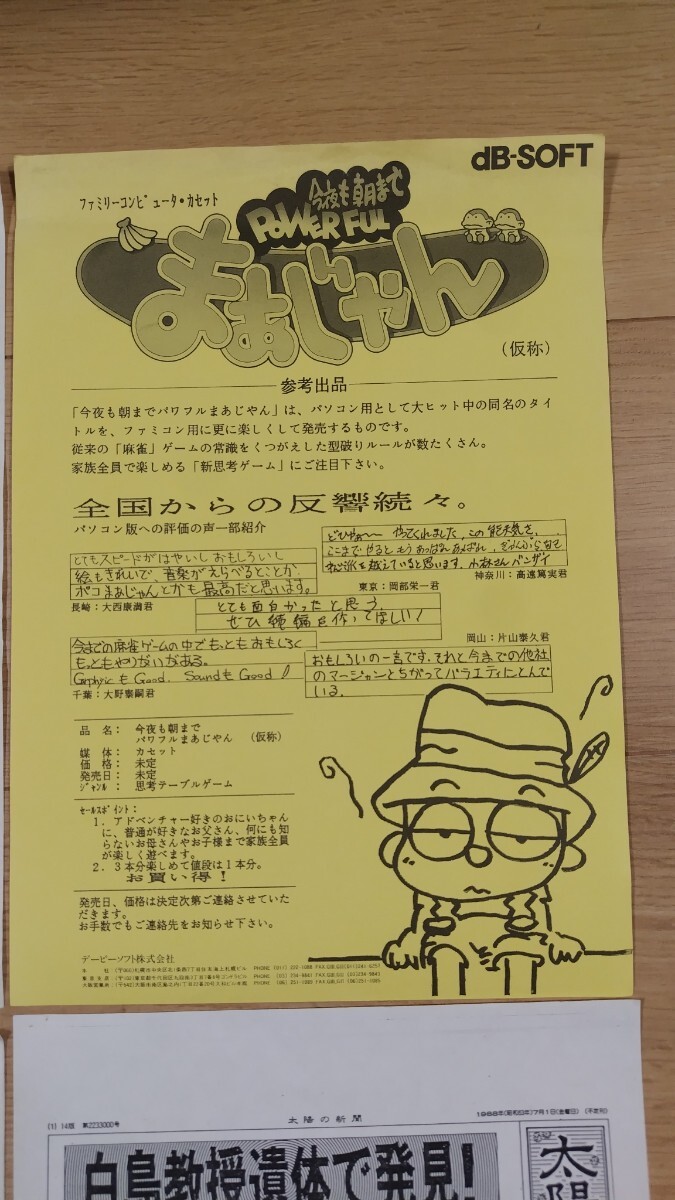 dB-SOFT
ファミリーコンピュータ・カセット
今夜も朝まで
POWERFUL
まあじゃん
(仮称)
参考出品
「今夜も朝までパワフルまあじやん」は、パソコン用として大ヒット中の同名のタイ
トルを、ファミコン用に更に楽しくして発売するものです。
従来の「麻雀」ゲームの常識をくつがえした型破りルールが数たくさん。
家族全員で楽しめる「新思考ゲーム」にご注目下さい。
全国からの反響続々。
パソコン版への評価の声一部紹介
とてもスピードがはやいし おもしろいし
絵もきれいで、音楽がえらべるとことか、
ポコまあじゃんとかも最高だと思います。
長崎：大西康満君
どひゃあ〜 やってくれました、この能天気さ、
ここまでやると もう あっぱれ あっぱれ、
を越えていると思います。小林さん バンザイ
神奈川：高遠篤実君
東京：岡部栄一君
とても面白かったと思う
ぜひ続編を作ってほしい！
今までの麻雀ゲームの中でもっともおもしろく
もっともやりがいがある。
Graphic も Good. Sound も Good !
千葉：大野泰嗣君
岡山：片山泰久君
おもしろいの一言です。それと今までの他社
のマージャンとちがってバラエティにとんで
いる。
品 名： 今夜も朝まで
パワフルまあじやん (仮称)
媒 体： カセット
価 格： 未定
発売日： 未定
ジャンル： 思考テーブルゲーム
セールスポイント：
1．アドベンチャー好きのおにいちゃん
に、普通が好きなお父さん、何にも知
らないお母さんやお子様まで家族全員
が楽しく遊べます。
2．3本分楽しめて値段は1本分。
お買い得！
発売日、価格は決定次第ご連絡させていた
だきます。
お手数でもご連絡先をお知らせ下さい。
デービーソフト株式会社
本 社
東京支店
大阪営業所
(1) 14版 第2233000号
太陽の新聞
1988年(昭和63年)7月1日(金曜日)
白鳥教授遺体で発見！
太陽